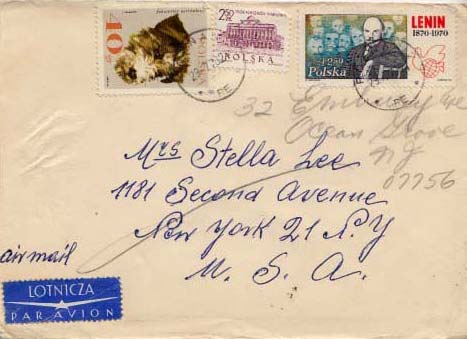 40 GR
2.50 ZŁ
POLSKA
LENIN
1870-1970
+2.50
Polska
32 Embury Ave
Ocean Grove
NJ
07756
Mrs Stella Lee
1181 Second Avenue
New York 21 N.Y
U. S. A.
air mail
LOTNICZA
PAR AVION